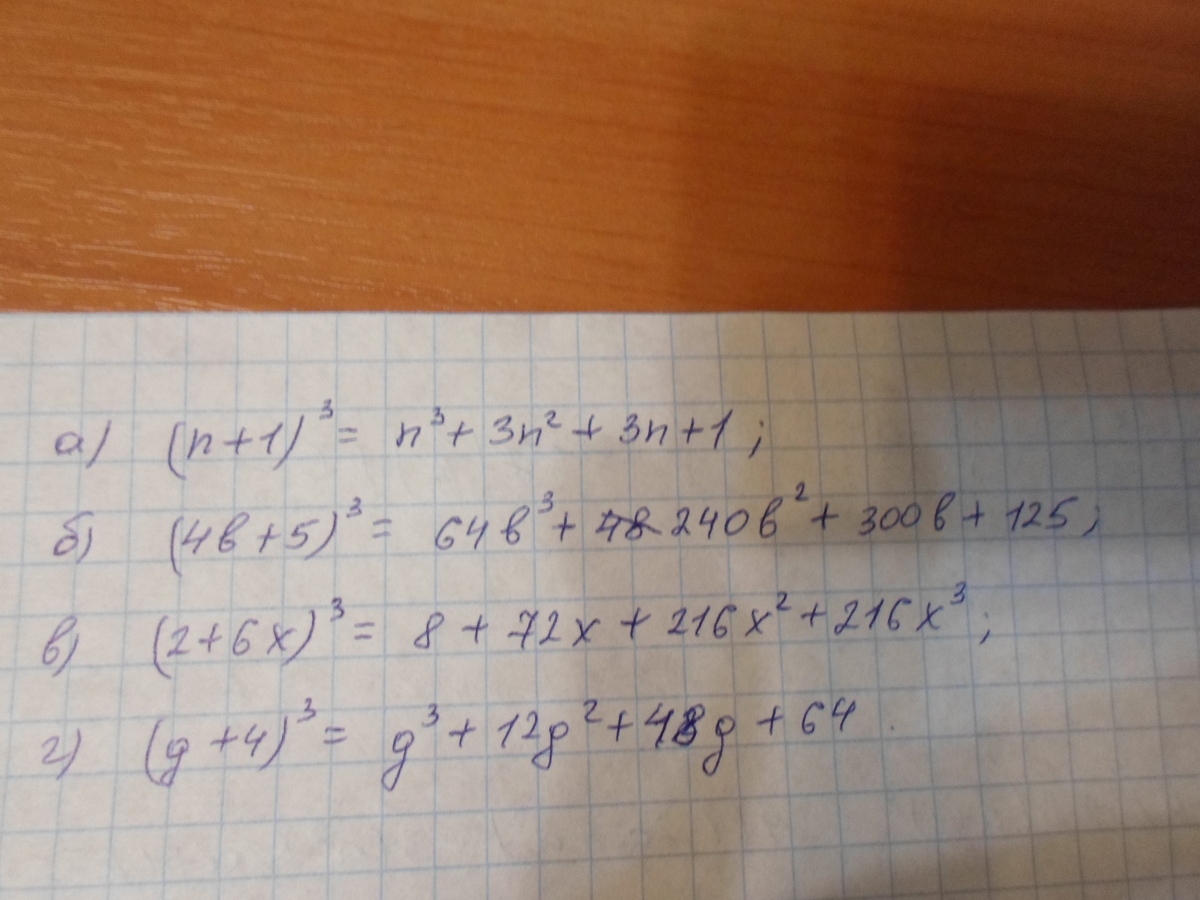 а) (n+1)³ = n³ + 3n² + 3n + 1;
б) (4в+5)³ = 64в³ + 48 240в² + 300в + 125;
в) (2+6x)³ = 8 + 72x + 216x² + 216x³;
г) (g+4)³ = g³ + 12g² + 48g + 64.